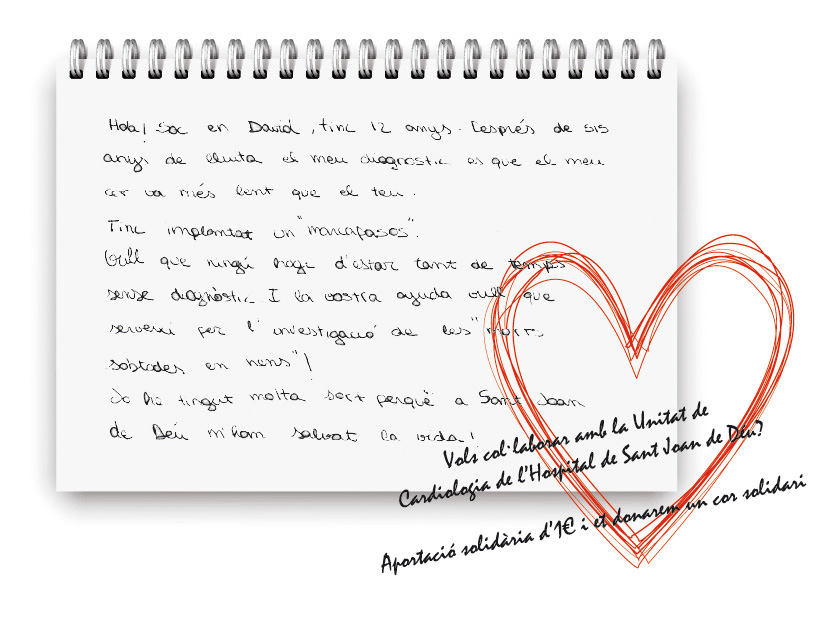 Hola! Sóc en David, tinc 12 anys. Després de sis
anys de lluita el meu diagnòstic es que el meu
cor va més lent que el teu.
Tinc implantat un "marcapasos".
Vull que ningú hagi d'estar tant de temps
sense diagnòstic I la vostra ajuda vull que
serveixi per l'investigació de les "morts
sobtades en nens"!
Jo he tingut molta sort perquè a Sant Joan
de Déu m'han salvat la vida!
Vols col·laborar amb la Unitat de
Cardiologia de l'Hospital de Sant Joan de Déu?
Aportació solidària d'1€ i et donarem un cor solidari